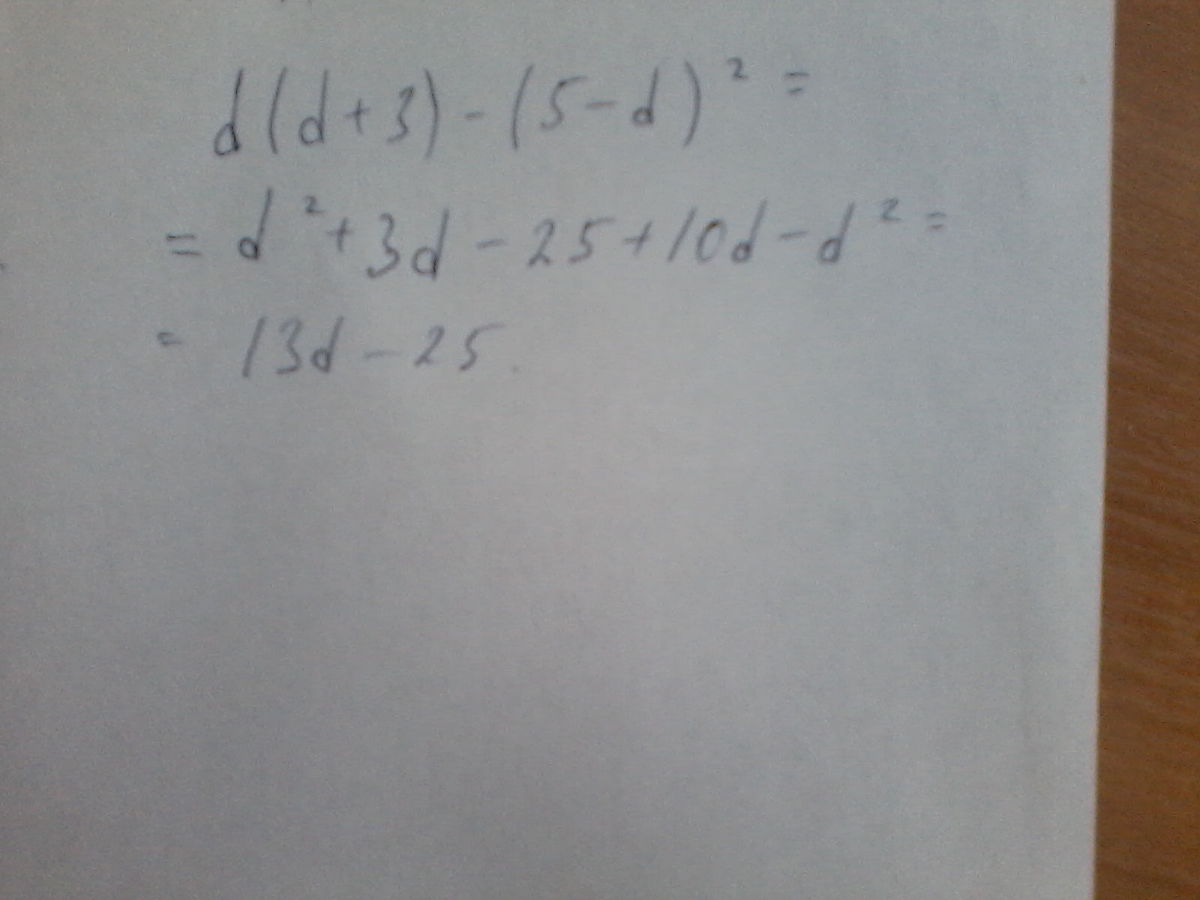 d(d+3)-(5-d)² =
= d²+3d-25+10d-d² =
= 13d-25.